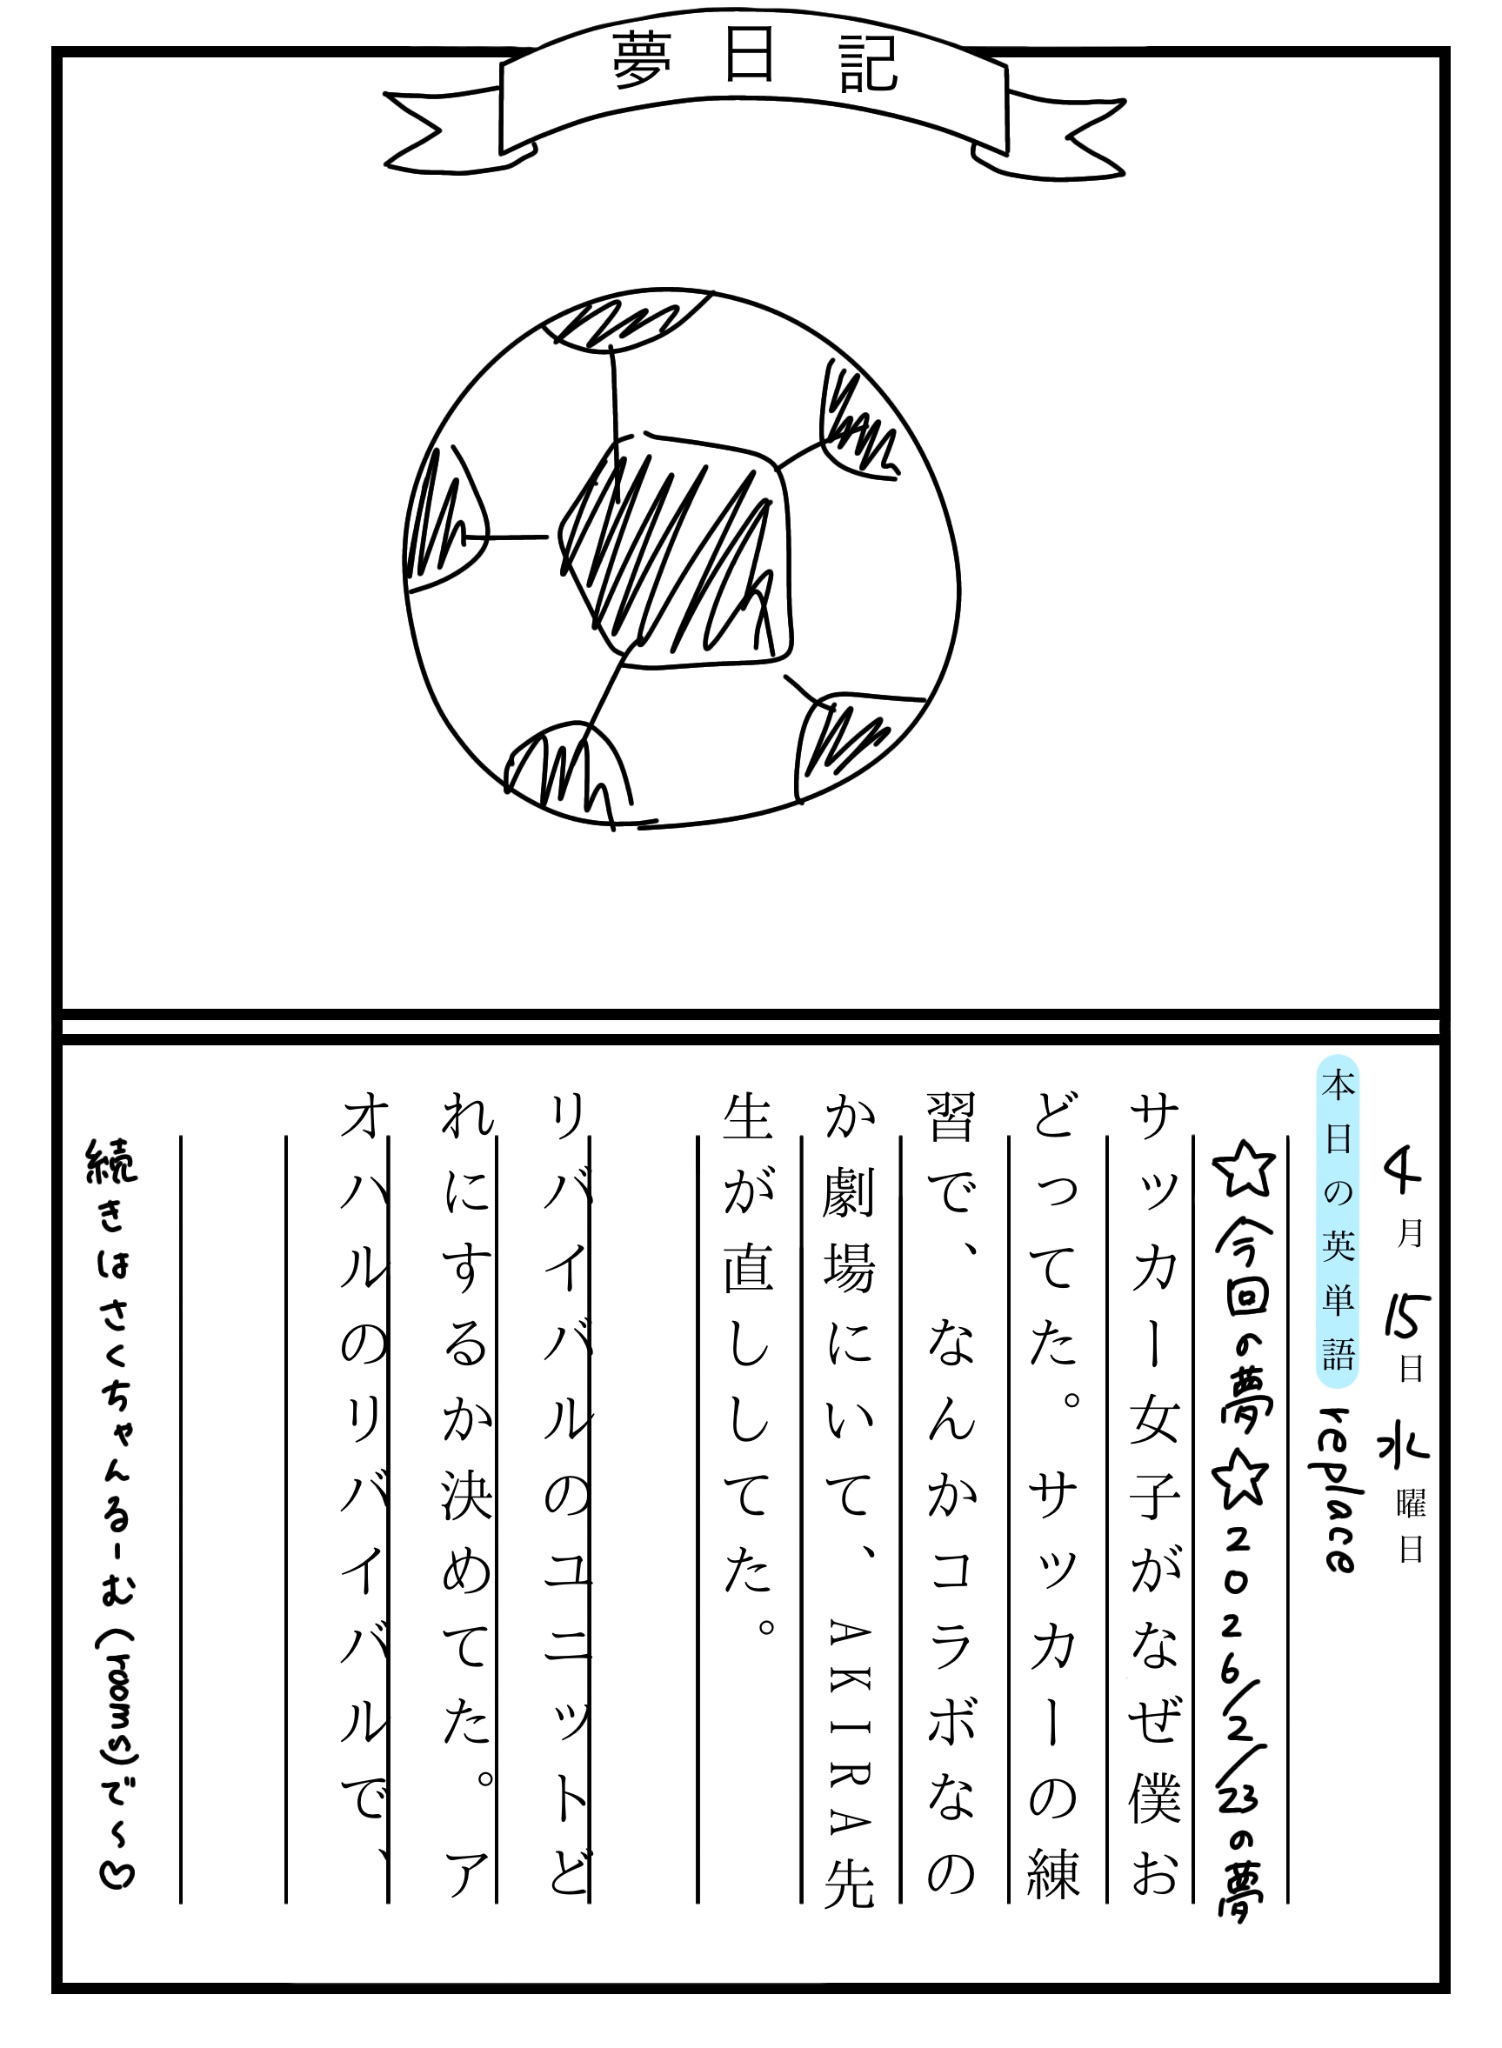 夢日記
4月15日水曜日
本日の英単語 replace
☆今回の夢☆2026/2/23の夢
サッカー女子がなぜ僕お
どってた。サッカーの練
習で、なんかコラボなの
か劇場にいて、AKIRA先
生が直ししてた。
リバイバルのユニットど
れにするか決めてた。ア
オハルのリバイバルで、
続きはさくちゃんるーむ(rooms)で〜♡